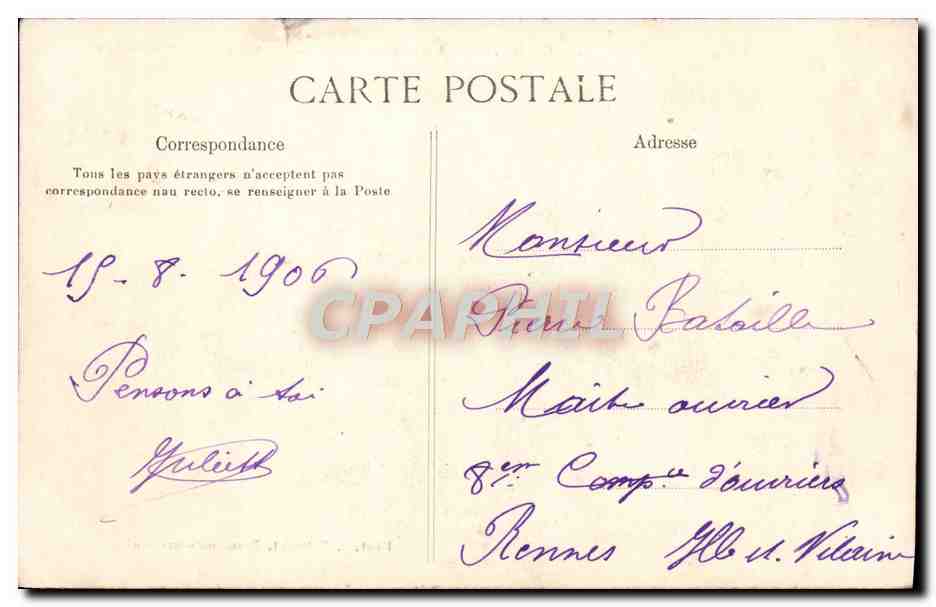 CARTE POSTALE
Correspondance
Tous les pays étrangers n'acceptent pas
correspondance nau recto, se renseigner à la Poste
15-8-1906
Pensons à toi
Juliette
Adresse
Monsieur
Pierre Bataille
Maitre ouvrier
8em Compie d'ouvriers
Rennes Ille et Vilaine
CPAPHIL